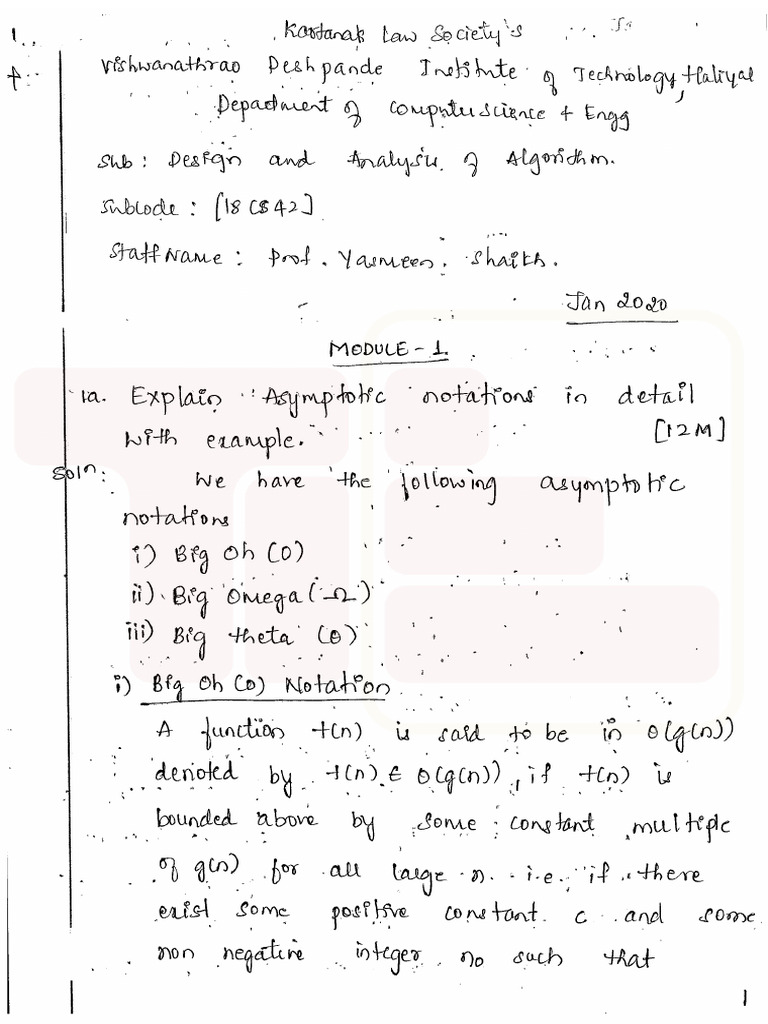 Karnatak Law Society's
Vishwanathrao Deshpande Institute of Technology, Haliyal
Department of Computer Science + Engg
Sub: Design and Analysis of Algorithm.
Subcode: [18CS42]
Staff Name: Prof. Yasmeen. Shaikh.
Jan 2020
MODULE-1.
1a. Explain Asymptotic notations in detail
with example. [12M]
Soln: We have the following asymptotic
notations
i) Big Oh (O)
ii) Big Omega (Ω)
iii) Big theta (θ)
i) Big Oh (O) Notation
A function t(n) is said to be in O(g(n))
denoted by t(n) ∈ O(g(n)), if t(n) is
bounded above by some constant multiple
of g(n) for all large n. i.e., if there
exist some positive constant c and some
non negative integer no such that
1